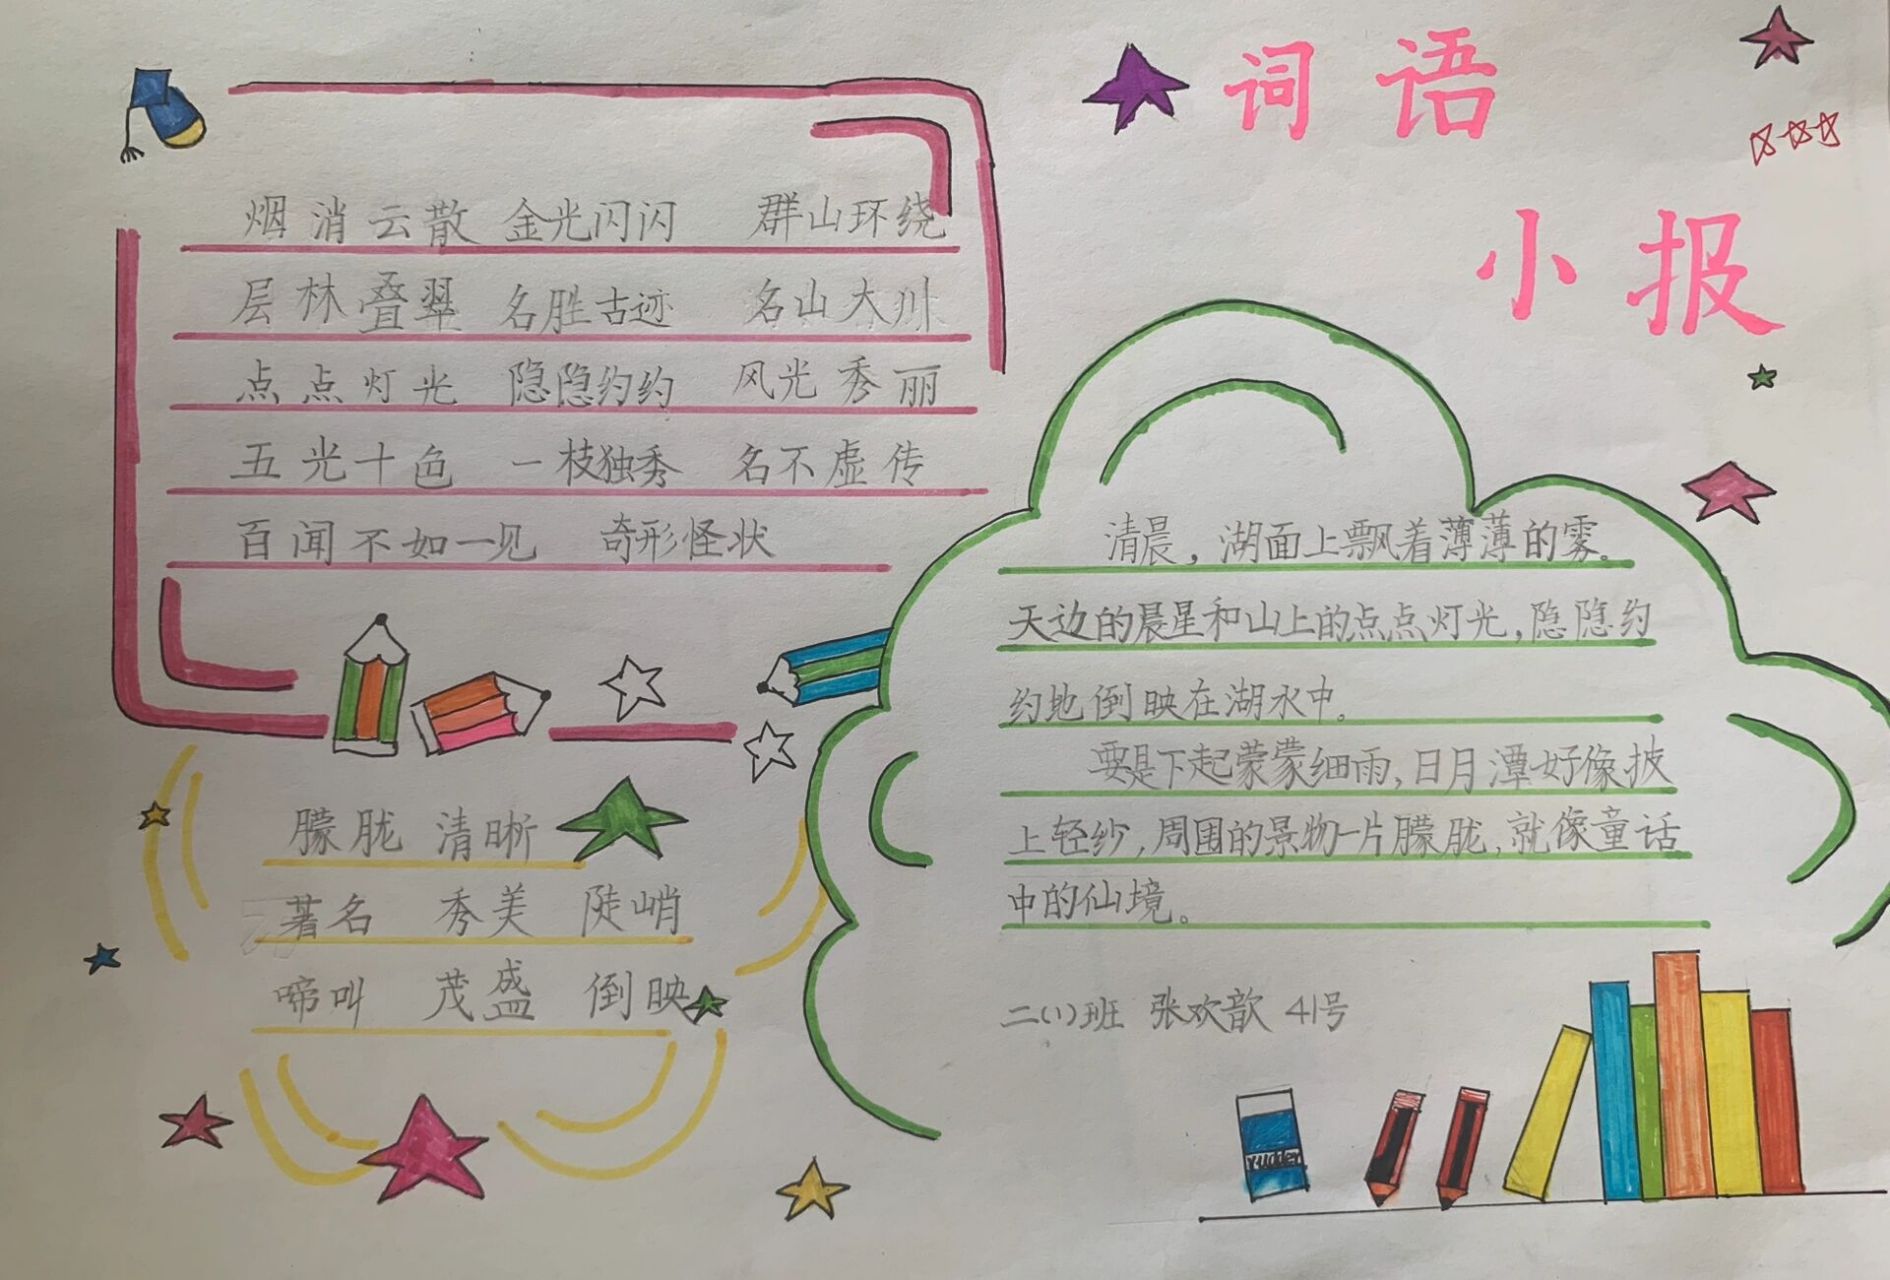 词语
小报
烟消云散 金光闪闪 群山环绕
层林叠翠 名胜古迹 名山大川
点点灯光 隐隐约约 风光秀丽
五光十色 一枝独秀 名不虚传
百闻不如一见 奇形怪状
朦胧 清晰
著名 秀美 陡峭
啼叫 茂盛 倒映
清晨，湖面上飘着薄薄的雾。
天边的晨星和山上的点点灯光，隐隐约
约地倒映在湖水中。
要是下起蒙蒙细雨，日月潭好像披
上轻纱，周围的景物一片朦胧，就像童话
中的仙境。
二(1)班 张欢歆 41号